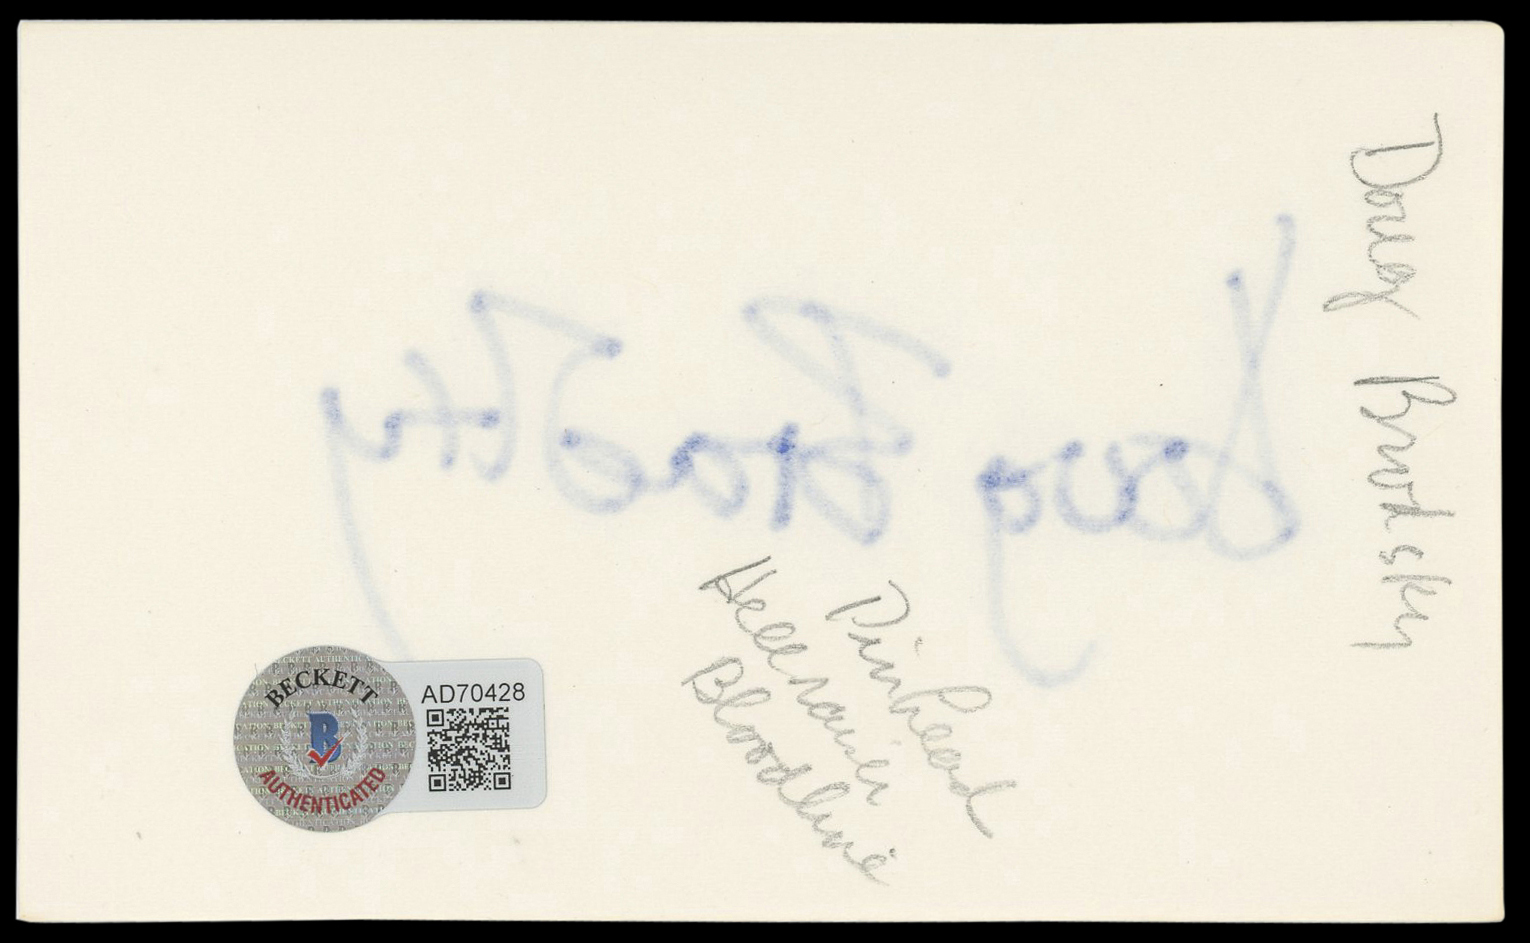 Doug Brodsky
Doug Brodsky
Pinhead
Hellraiser
Bloodline
BECKETT
B
AUTHENTICATED
AD70428